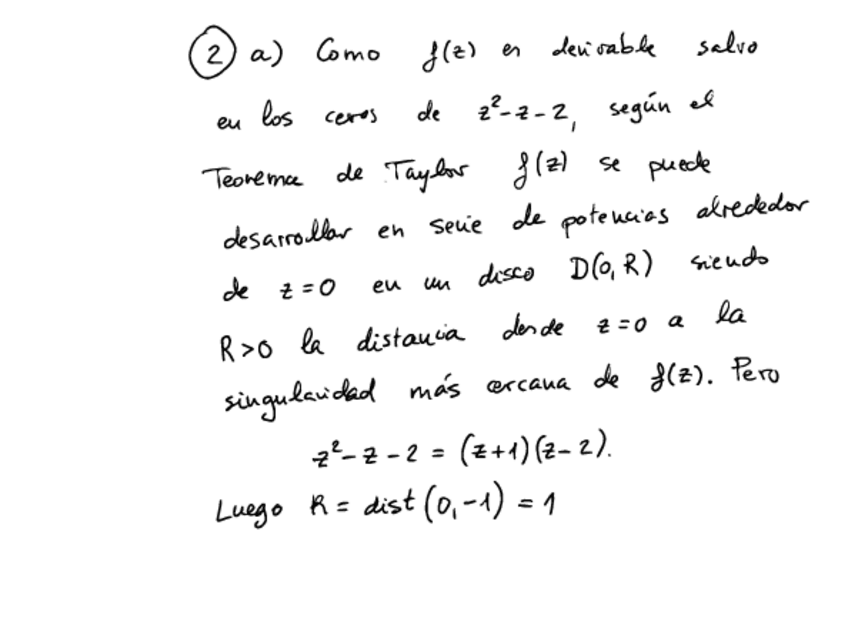 ② a) Como f(z) es derivable salvo
en los ceros de z²-z-2, según el
Teorema de Taylor f(z) se puede
desarrollar en serie de potencias alrededor
de z=0 en un disco D(0,R) siendo
R>0 la distancia desde z=0 a la
singularidad más cercana de f(z). Pero
z²-z-2 = (z+1)(z-2).
Luego R = dist(0,-1) = 1